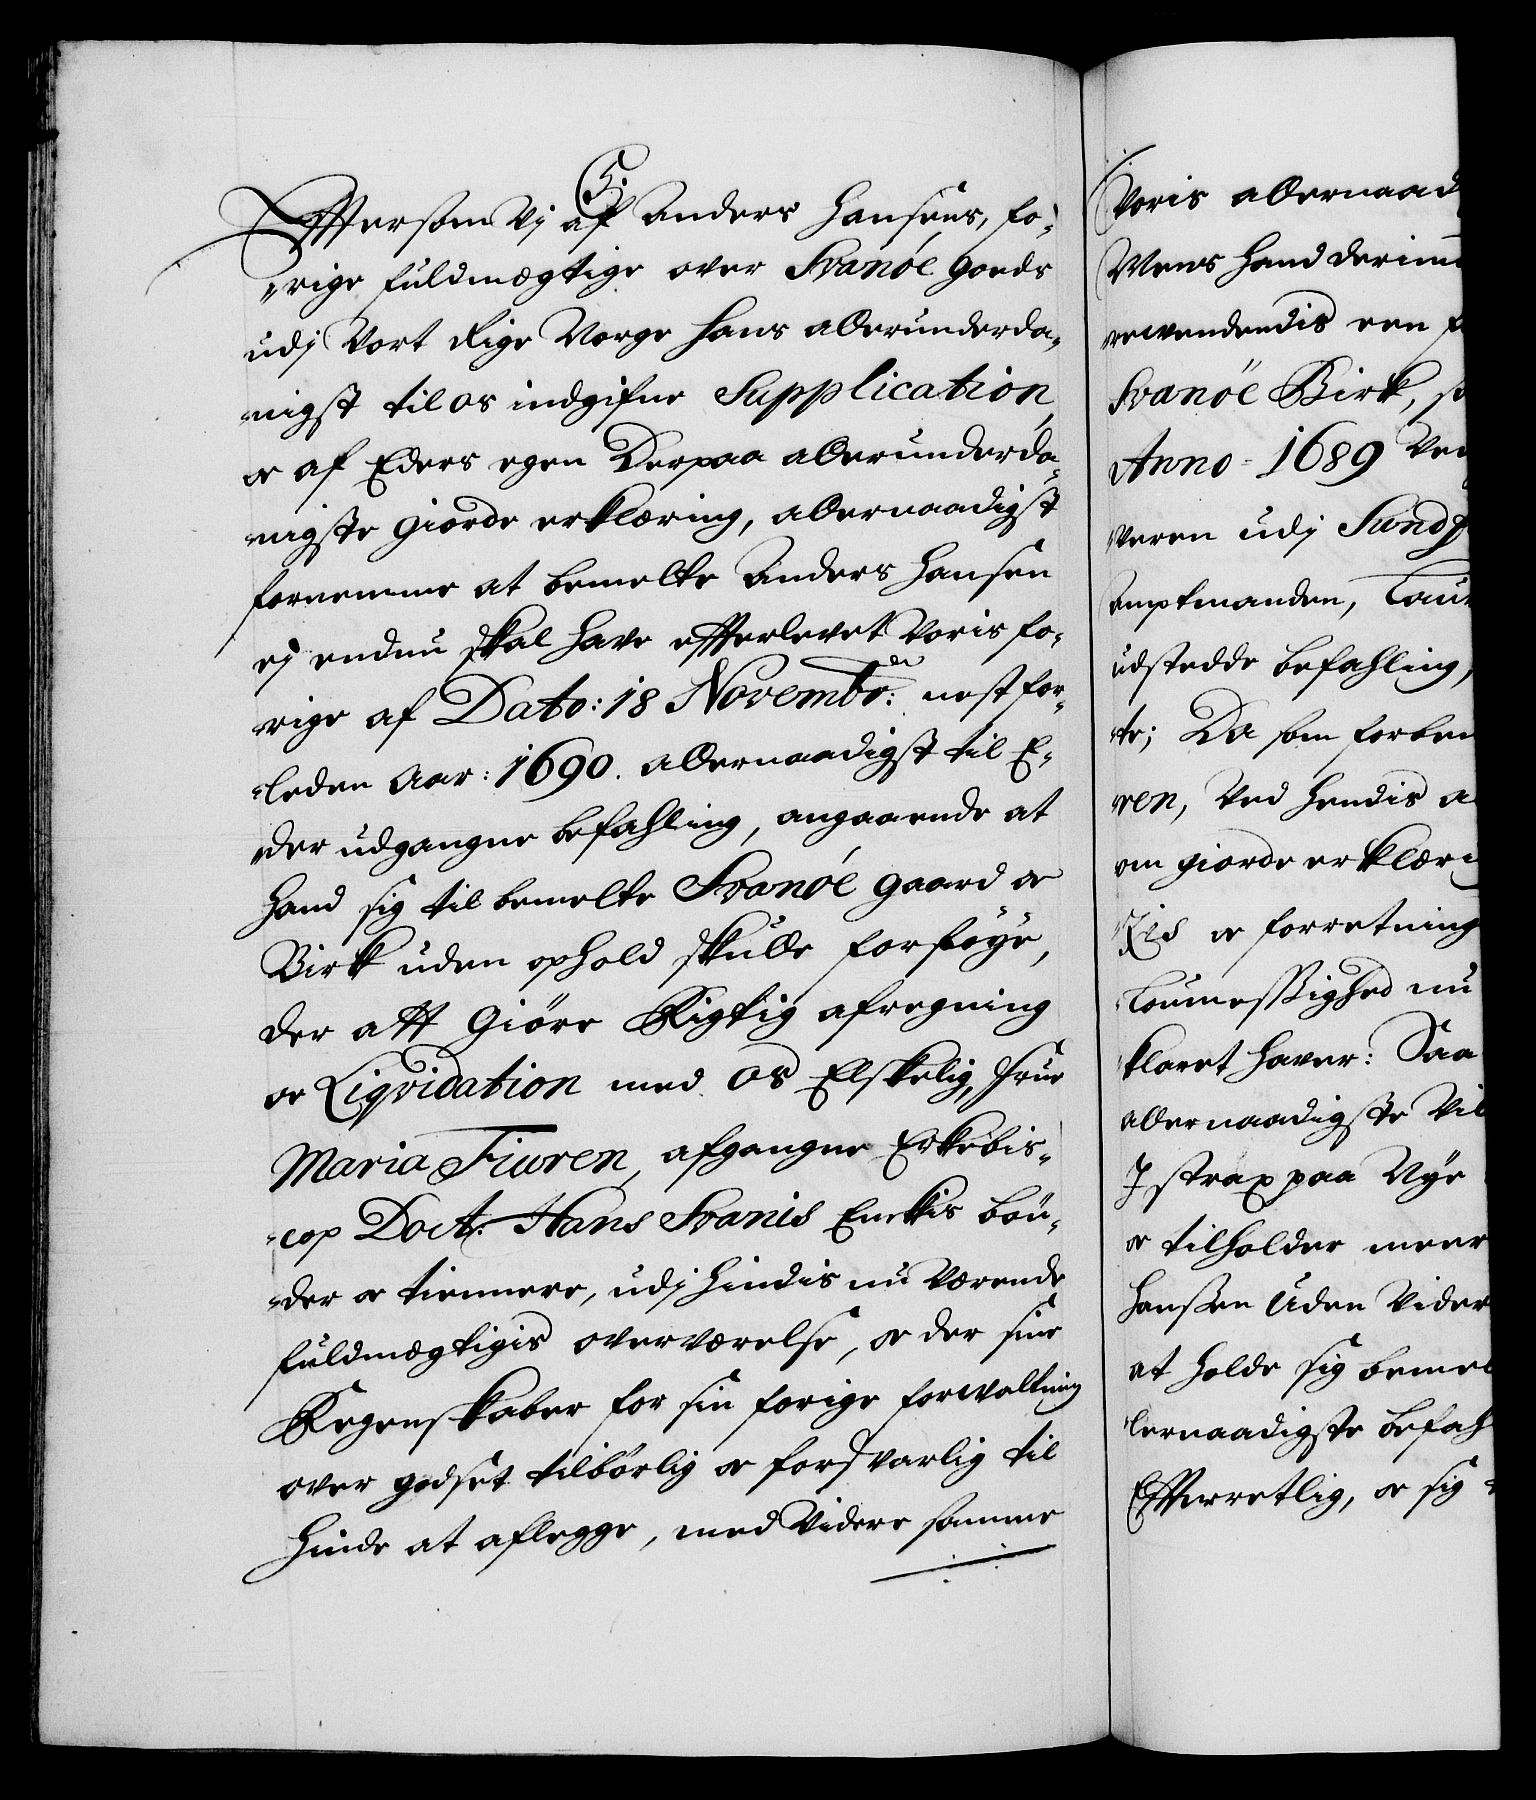 G.
Eftersom Vj af Anders Hansens, fo-
rige fuldmegtige over Svanøe Goeds
udj Vort Rige Norge hans allerunderda-
nigst til os indgifne Supplication,
oc af Eders egen Derpaa allerunderda-
nigste giorde erklæring, allernaadigst
fornemme at bemelte Anders Hansen
ej endnu skal have efterlevet Voris fo-
rige af Dato: 18 Novembr: nest for-
leden Aar: 1690. allernaadigst til E-
der udgangne befahling, angaaende at
hand sig til bemelte Svanøe gaard oc
Birk uden ophold skulle forføye,
der att giøre Rigtig afregning
oc Liqvidation med os Elskelig, Frue
Maria Fiuren, afgangne Erkebis-
cop Doct: Hans Svanis Enckis bøn-
der oc tiennere, udj hindis nu værende
fuldmegtigis overværelse, oc der sine
Regenskaber for sin forige forvaltning
over godset tilbørlig oc forsvarlig til
hinde at aflegge, med Videre samme
Voris allernaad
Mens hand derim
newendendis een f
Svanöe Birk, s
Anno 1689 Ved
Veren udj Sundf
amptmanden, Laur
udstedde befahling,
te; Da som forben
ren, Ved hendis a
om giorde erklæri
Vis oc forretning
Loumessighed nu
klaret haver: Saa
allernaadigste Vil
I strax paa Nye
oc tilholder meer
Hanssen Uden Vider
at holde sig bemel
lernaadigste befah
Efterretlig, oc sig